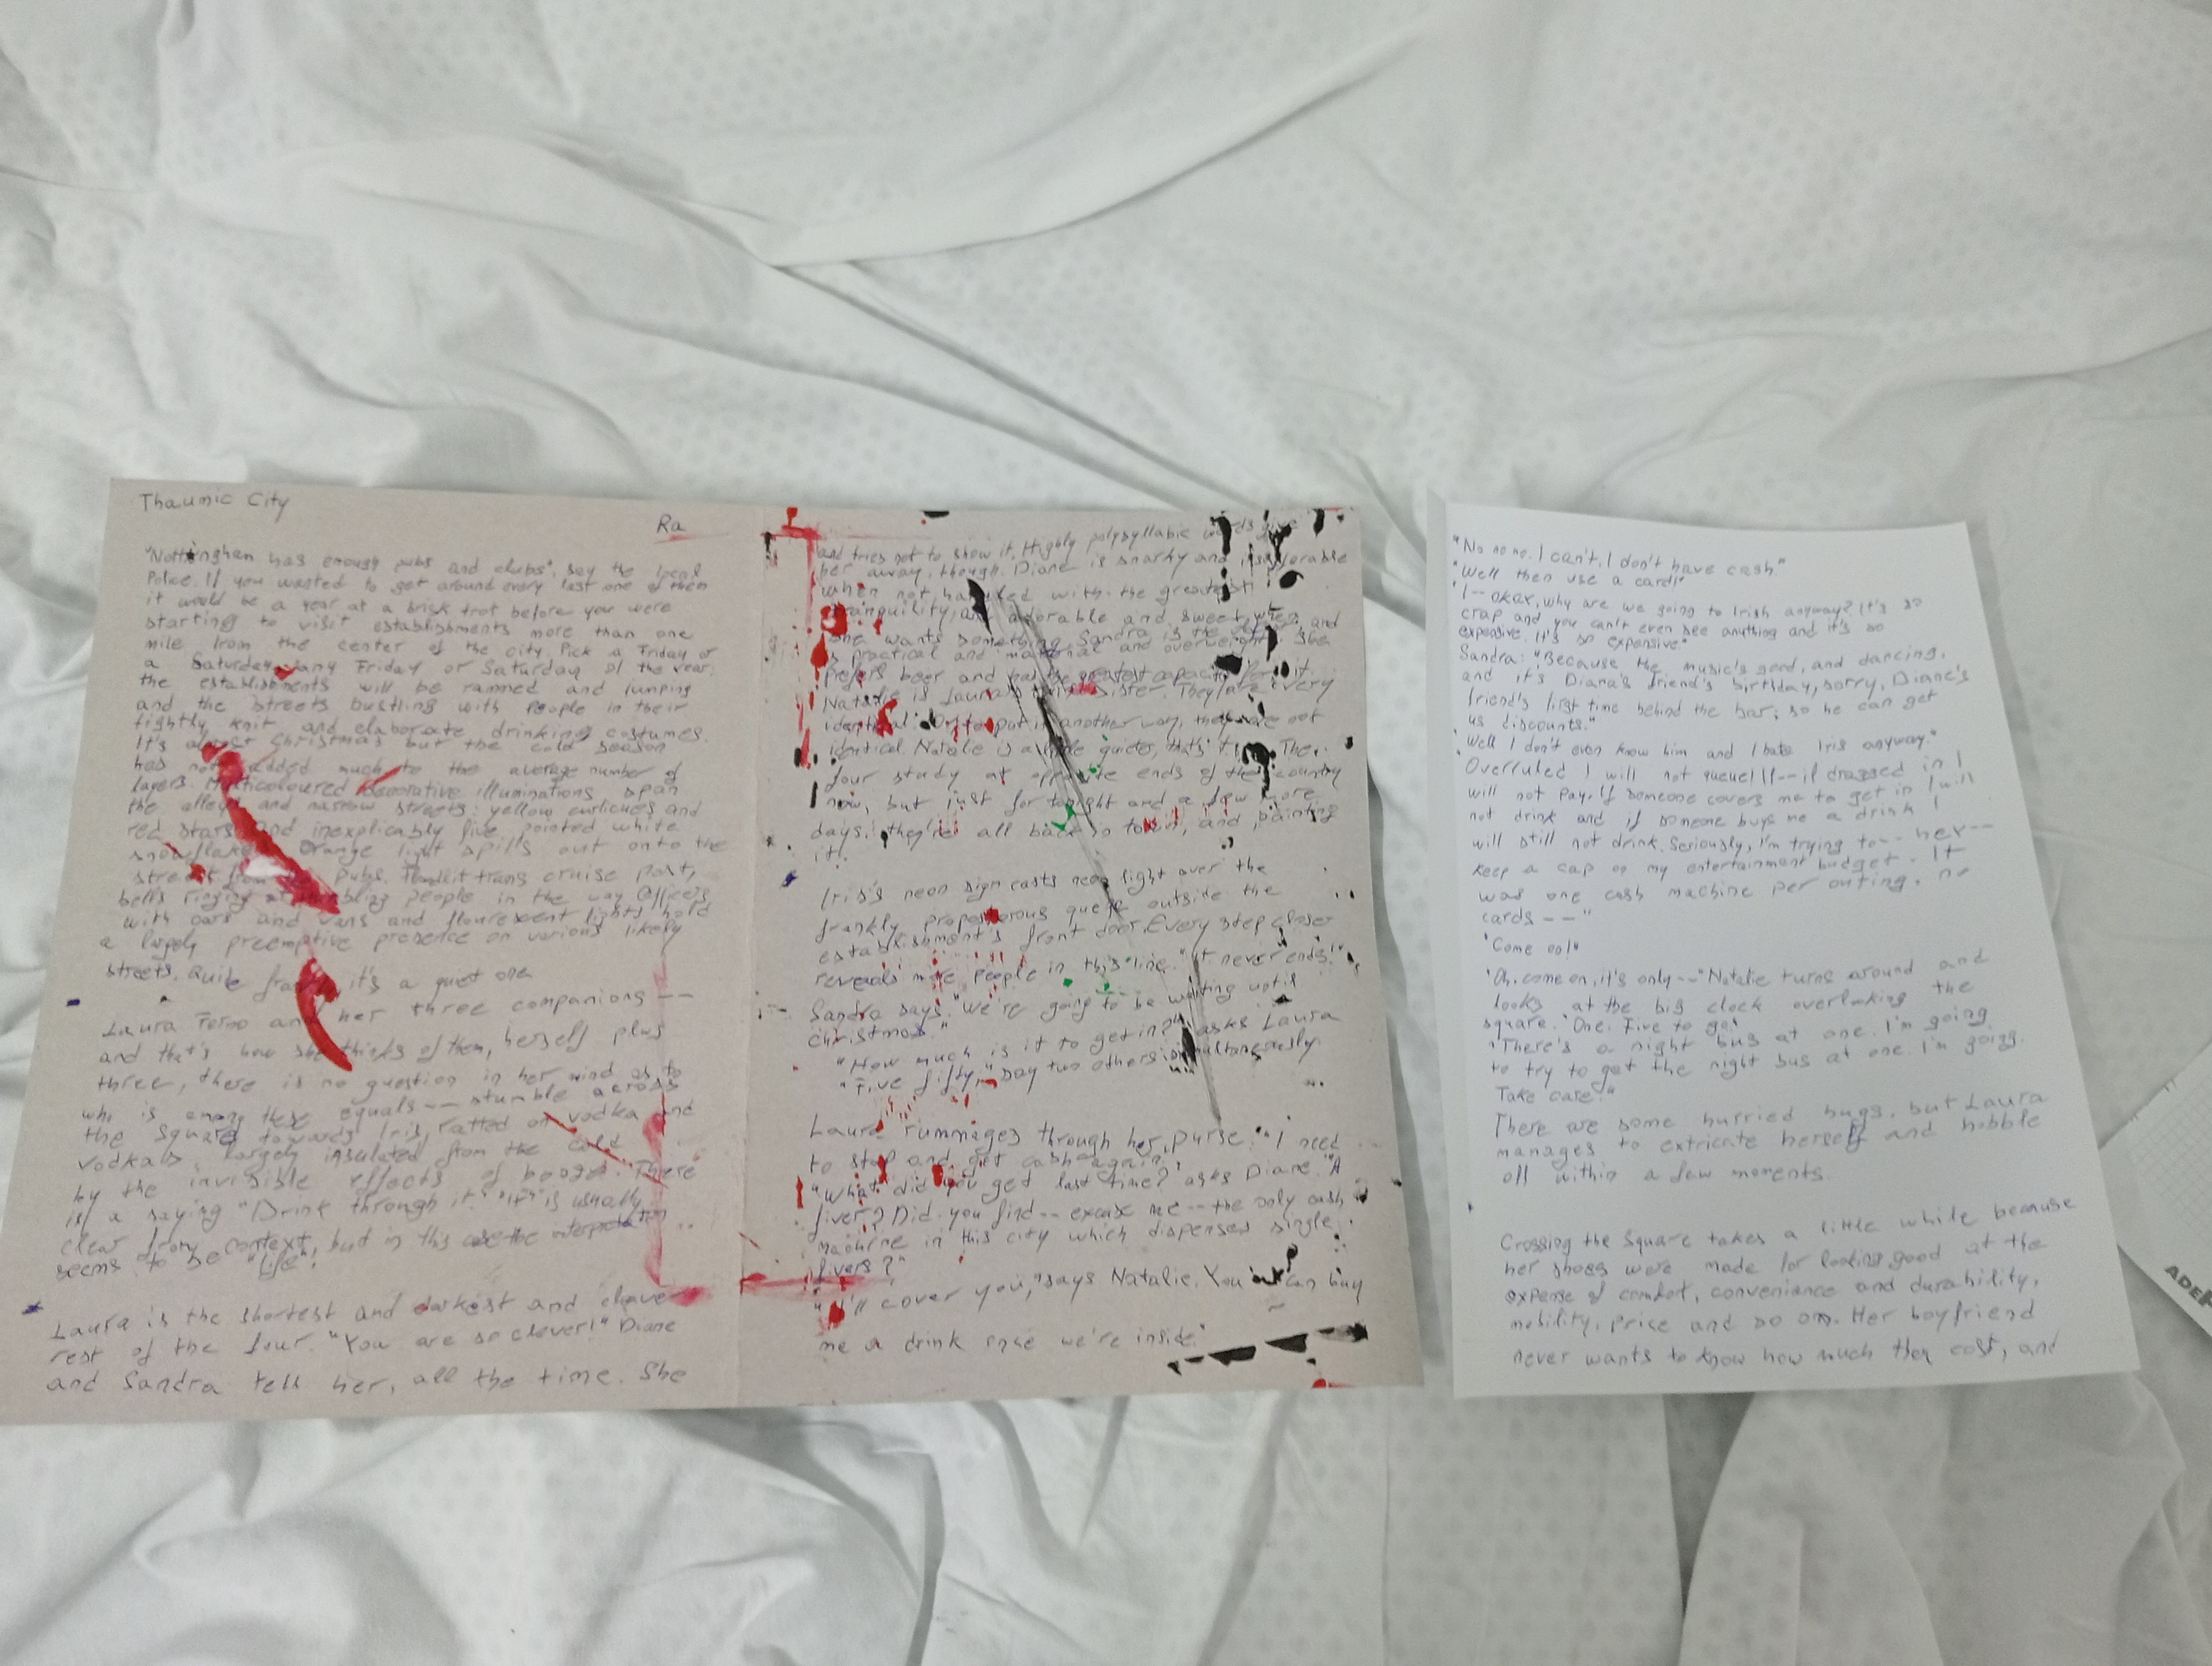 Thaumic City
Ra
"Nottingham has enough pubs and clubs", say the local
Police. If you wanted to get around every last one of them
it would be a year at a brisk trot before you were
starting to visit establishments more than one
mile from the center of the city. Pick a Friday or
a Saturday, any Friday or Saturday of the year:
the establishments will be rammed and jumping
and the streets bustling with people in their
tightly knit and elaborate drinking costumes.
It's almost Christmas but the cold season
has not added much to the average number of
layers. Multicoloured decorative illuminations span
the alleys and narrow streets: yellow curlicues and
red stars and inexplicably five pointed white
snowflakes. Orange light spills out onto the
street from the pubs. trams cruise past,
bells ringing at people in the way. Officers
with cars and vans and flourescent lights hold
a largely preemptive presence on various likely
streets. Quite frankly, it's a quiet one
Laura Ferno and her three companions --
and that's how she thinks of them, herself plus
three, there is no question in her mind as to
who is among these equals -- stumble across
the Square towards Iris, ratted on vodka and
vodkas, largely insulated from the cold
by the invisible effects of booze. There
is a saying "Drink through it". "It" is usually
clear from context, but in this case the interpretation
seems to be "life".
Laura is the shortest and darkest and
rest of the four. "You are so clever!" Diane
and Sandra tell her, all the time. She
and tries not to show it. Highly polysyllabic words give
her away, though. Diane is snarky and
when not handled with the greatest
tranquility, adorable and sweet when
she wants something. Sandra is the and
is practical and maternal and overweight. She
prefers beer and has the greatest capacity for it.
Natalie is Laura's sister. They are very
identical. Or to put it another way, they are not
identical. Natalie is a little quieter, that's The
four study at opposite ends of the country
now, but just for tonight and a few more
days, they're all back in town, and painting
it.
Iris's neon sign casts neon light over the
frankly preposterous queue outside the
establishment's front door. Every step closer
reveals more people in this line. "It never ends!"
Sandra says. "We're going to be waiting until
Christmas."
"How much is it to get in?" asks Laura
"Five fifty," say two others simultaneously
Laura rummages through her purse. "I need
to stop and get cash again."
"What did you get last time?" asks Diane. "A
fiver? Did you find -- excuse me -- the only cash
machine in this city which dispenses single
fivers?"
"I'll cover you," says Natalie. You can buy
me a drink once we're inside."
"No no no. I can't. I don't have cash"
"Well then use a card!"
"I-- okay, why are we going to Irish anyway? It's so
crap and you can't even see anything and it's so
expensive. It's so expensive"
Sandra: "Because the music's good, and dancing,
and it's Diana's friend's birthday, sorry, Diane's
friend's first time behind the bar; so he can get
us discounts."
"Well I don't even know him and I hate Iris anyway."
Overruled I will not queue! If-- if dragged in I
will not pay. If someone covers me to get in I will
not drink and if someone buys me a drink I
will still not drink. Seriously, I'm trying to -- hey --
keep a cap on my entertainment budget. It
was one cash machine per outing, no
cards --"
"Come on!"
"Oh, come on, it's only --" Natalie turns around and
looks at the big clock overlooking the
square. "One. Five to go!
"There's a night bus at one. I'm going
to try to get the night bus at one. I'm going.
Take care!"
There are some hurried hugs, but Laura
manages to extricate herself and hobble
off within a few moments.
Crossing the Square takes a little while because
her shoes were made for looking good at the
expense of comfort, convenience and durability,
mobility, price and so on. Her boyfriend
never wants to know how much they cost, and